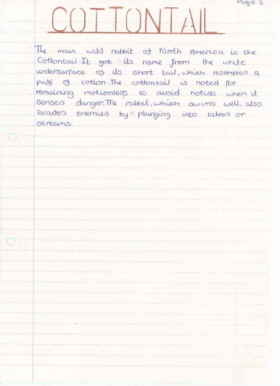 Page 2
COTTONTAIL
The main wild rabbit of North America is the
Cottontail. It got its name from the white
undersurface of its short tail, which resembles a
puff of cotton. The cottontail is noted for
remaining motionless to avoid notice when it
senses danger. The rabbit, which swims well, also
evades enemies by plunging into lakes or
streams.